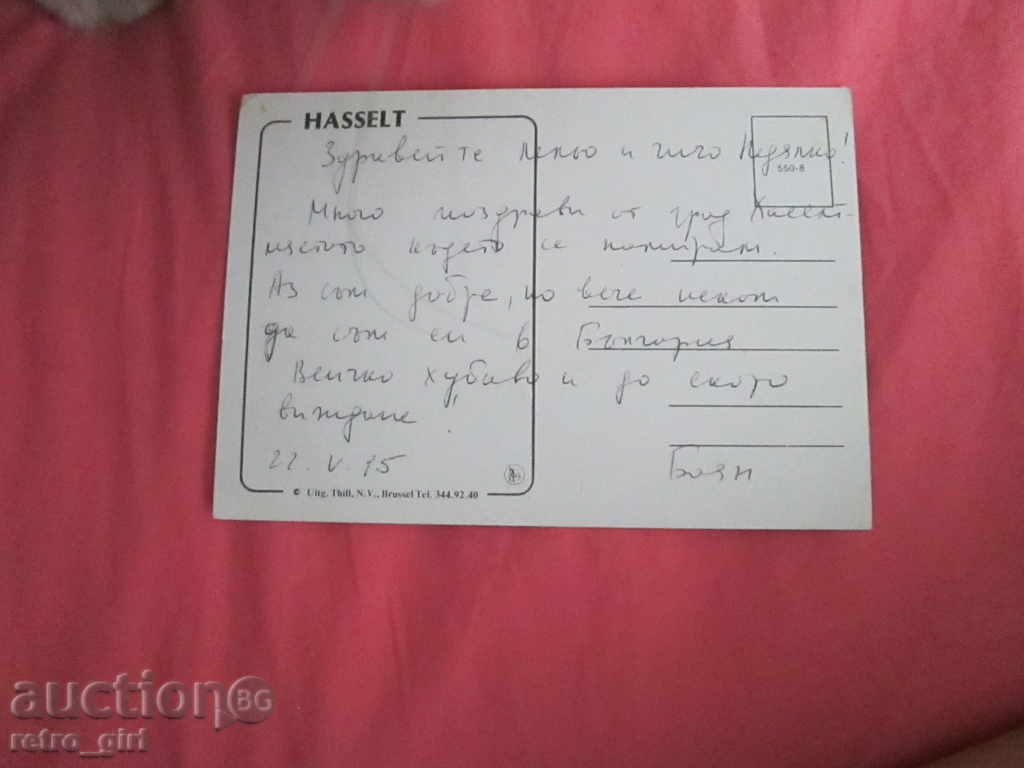 HASSELT
Здравейте Пепьо и чичо Недялко!
550-8
Много поздрави от град Хаселт-
мястото където се намирам.
Аз съм добре, но вече искам
да съм си в България
Всичко хубаво и до скоро
виждане!
22. V. 75
Боян
© Uitg. Thill, N.V., Brussel Tel. 344.92.40
auctionBG
retro_girl